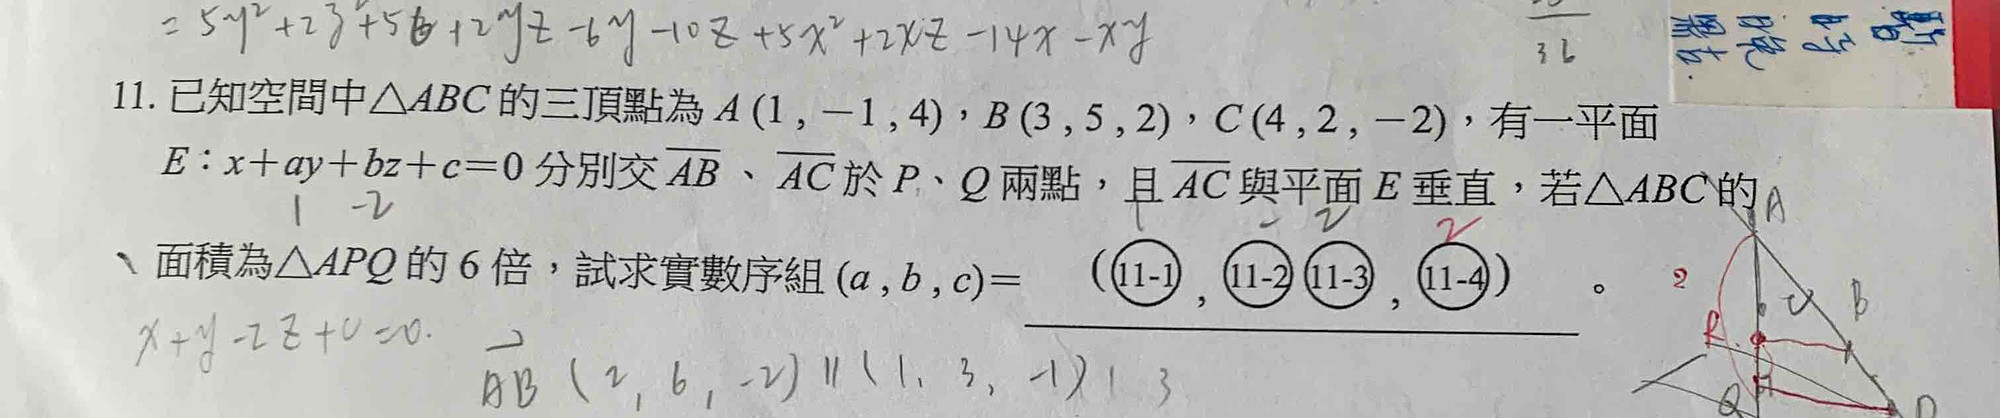 = 5y²+2z²+56+2yz-6y-10z+5x²+2xz-14x-xy
36
11. 已知空間中△ABC的三頂點為 A (1 , −1 , 4),B (3 , 5 , 2),C (4 , 2 , −2),有一平面
E:x+ay+bz+c=0 分別交 AB 、 AC 於 P、Q 兩點,且 AC 與平面 E 垂直,若△ABC 的
1 -2
A
1 - 2 2
、面積為△APQ 的 6 倍,試求實數序組 (a , b , c)= (11-1 , 11-2 11-3 , 11-4) 。
2
B
x+y-2z+c=0.
R
AB (2, 6, -2) // (1, 3, -1) 1 3
Q